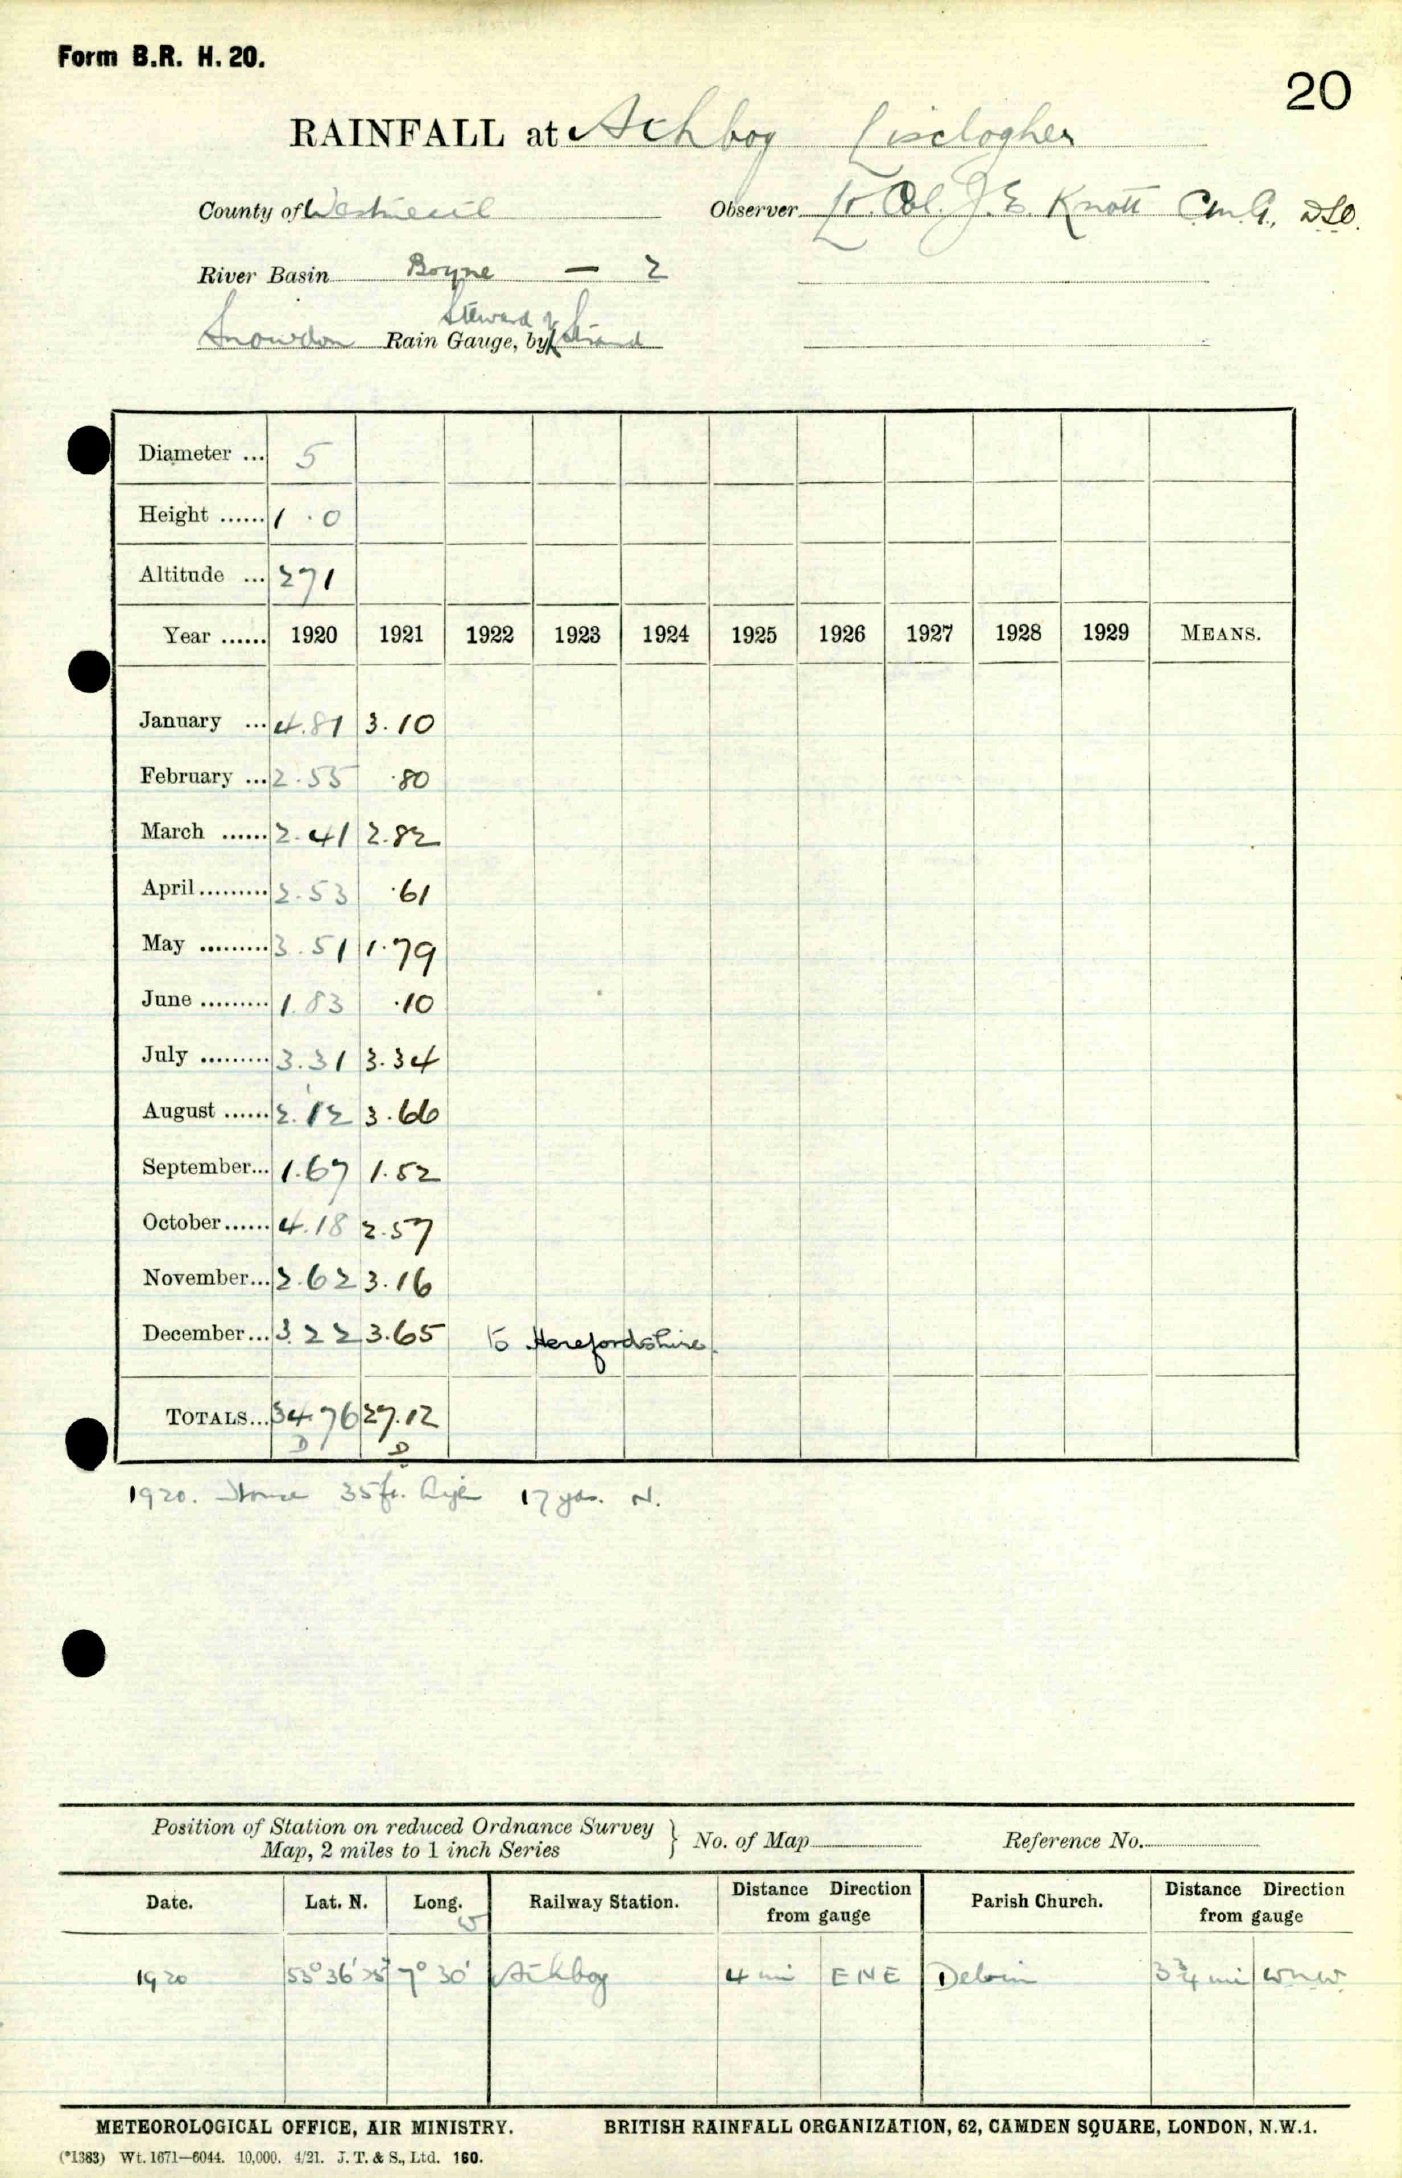 Form B.R. H. 20.
20
RAINFALL at Athboy Lisclogher
County of Westmeath Observer Lt. Col. J. E. Knott C.M.G., D.S.O.
River Basin Boyne — 2
Steward of
Snowdon Rain Gauge, by Strand
Diameter ... 5
Height ...... 1 . 0
Altitude ... 271
Year ...... 1920 1921 1922 1923 1924 1925 1926 1927 1928 1929 MEANS.
January ... 4.81 3.10
February ... 2.55 .80
March ...... 2.41 2.82
April ......... 2.53 .61
May ......... 3.51 1.79
June ......... 1.83 .10
July ......... 3.31 3.34
August ...... 2.12 3.66
September... 1.67 1.52
October...... 4.18 2.57
November... 2.62 3.16
December... 3.22 3.65 to Herefordshire.
TOTALS... 34.76 27.12
D D
1920. House 35 ft. high 17 yds. N.
Position of Station on reduced Ordnance Survey
Map, 2 miles to 1 inch Series } No. of Map Reference No.
Date. Lat. N. Long. W Railway Station. Distance Direction from gauge Parish Church. Distance Direction from gauge
1920 53° 36' 25" 7° 30' Athboy 4 mi ENE Delvin 3¾ mi WNW
METEOROLOGICAL OFFICE, AIR MINISTRY. BRITISH RAINFALL ORGANIZATION, 62, CAMDEN SQUARE, LONDON, N.W.1.
(*1383) Wt. 1671—6044. 10,000. 4/21. J. T. & S., Ltd. 160.